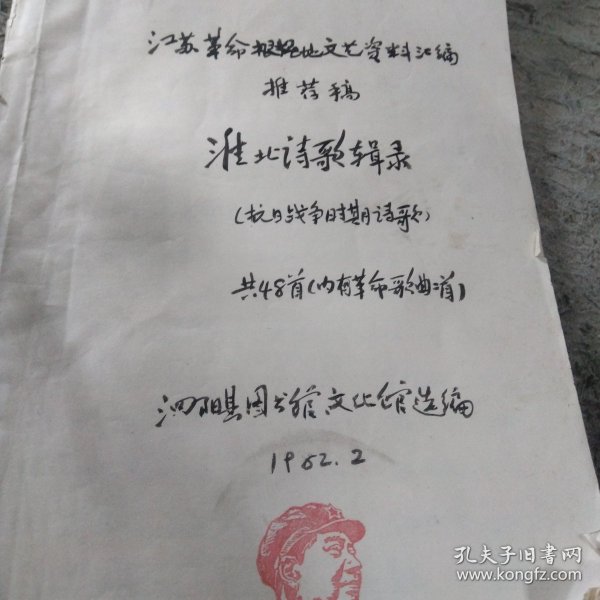 江苏革命根据地文艺资料汇编
推荐稿
淮北诗歌辑录
(抗日战争时期诗歌)
共48首(内有革命歌曲二首)
泗阳县图书馆文化馆选编
1962.2
孔夫子旧书网
www.kongfz.com